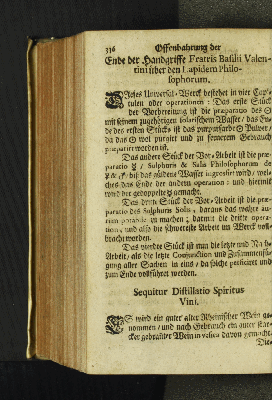 336 Offenbahrung der
Ende der Handgriffe Fratris Basilii Valen-
tini über den Lapidem Philo-
sophorum.
Dieses Universal-Werck bestehet in vier Capi-
tulen oder operationen: Das erste Stück
der Vorbereitung ist die præparatio des ☉
mit seinem zugehörigen solarischem Wasser, das En-
de des ersten Stücks ist das purpurfarbe Pulver,
da das ☉ wol purgirt und zu fernerem Gebrauch
præparirt worden ist.
Das andere Stück der Vor-Arbeit ist die præ-
paratio ☿, Sulphuris & Salis Philosophorum de
das güldene Wasser ingrossirt wird, wel-
ches das Ende der andern operation, und hiermit
wird der gedoppelte ☿ gemacht.
Das dritte Stück der Vor-Arbeit ist die præ-
paratio des Sulphuris Solis, daraus das wahre au-
rum potabile zu machen, damit die dritte opera-
tion, und also die schwereste Arbeit am Werck voll-
bracht worden.
Das vierdte Stück ist nun die letzte und
Arbeit, als die letzte Conjunction und Zusammenfü-
gung aller Sachen in eins, da solche perficiret und
zum Ende vollführet werden.
Sequitur Distillatio Spiritus
Vini.
Es wird ein guter alter Rheinischer Wein ge-
nommen, und nach Gebrauch ein guter star-
cker gebrañter Wein in vesica davon gemacht.
Die-